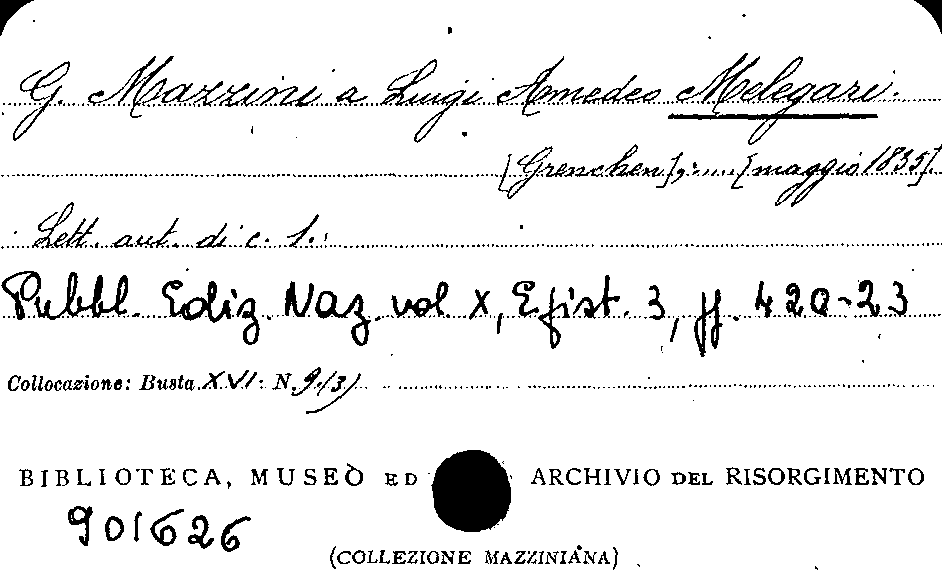 G. Mazzini a Luigi Amedeo Melegari.
[Grenchen], ..... [maggio 1835].
Lett. aut. di c. 1.
Pubbl. Ediz. Naz. vol. X, Epist. 3, pp. 420-23
Collocazione: Busta XVI: N. 9(3)
BIBLIOTECA, MUSEO ED ARCHIVIO DEL RISORGIMENTO
901626
(COLLEZIONE MAZZINIANA)